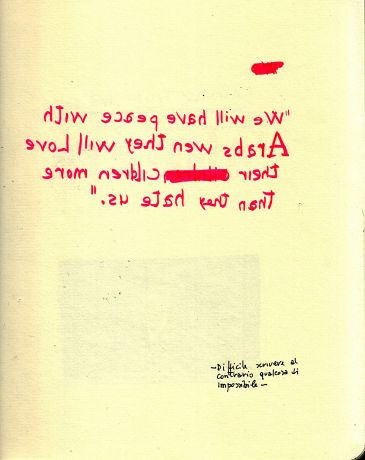 "We will have peace with
Arabs wen they will Love
their cildren more
than they hate us".
-Difficile scrivere al
contrario qualcosa di
impossibile-